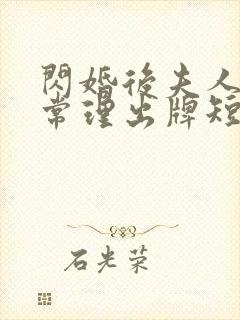 閃婚後夫人
常理出牌短
石光荣